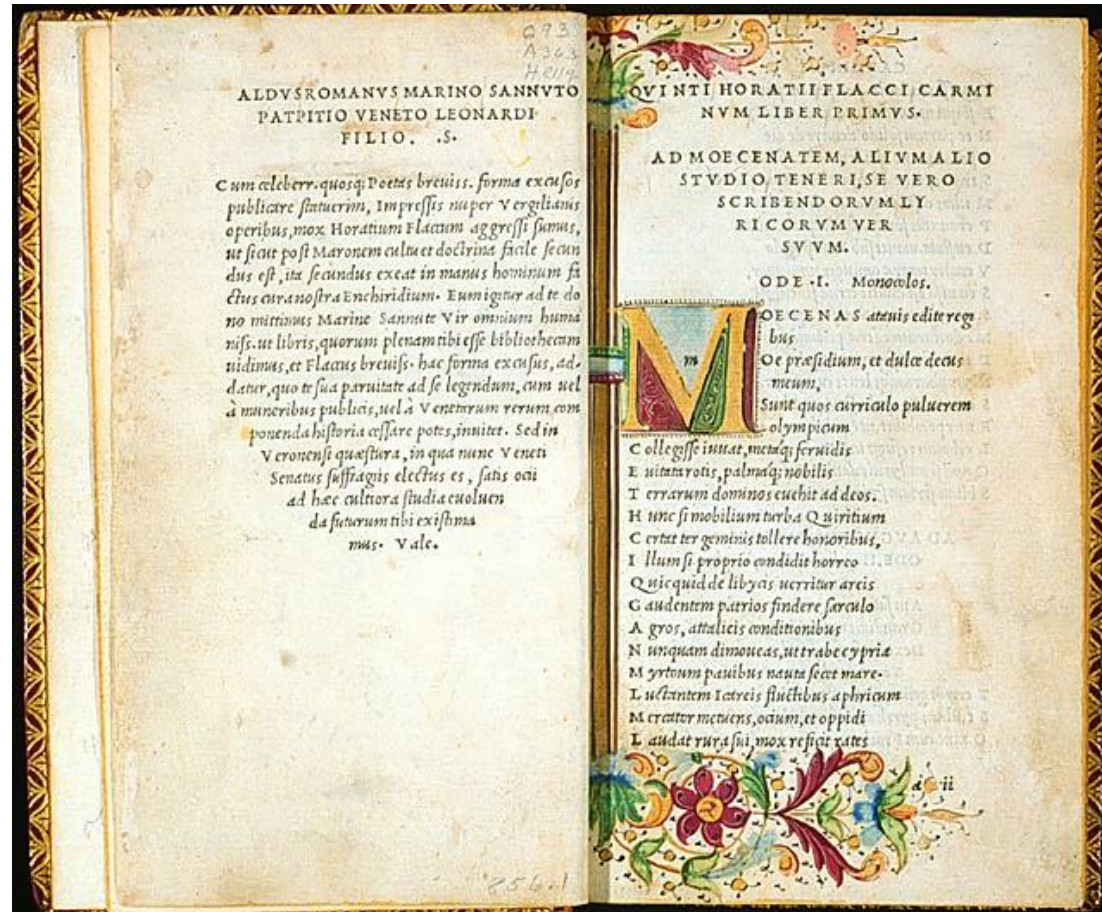 693
A363
H819
ALDVSROMANVS MARINO SANNVTO
PATPITIO VENETO LEONARDI
FILIO. .S.
Cum celeberr. quosq; Poetas breuiss. forma excusos
publicare statuerim, Impressis nuper Vergilianis
operibus, mox Horatium Flaccum aggressi sumus,
ut sicut post Maronem cultu et doctrina facile secun
dus est, ita secundus exeat in manus hominum fa
ctus cura nostra Enchiridium. Eum igitur ad te do
no mittimus Marine Sannute Vir omnium huma
niss. ut libris, quorum plenam tibi esse bibliothecam
uidimus, et Flaccus breuiss. hac forma excusus, ad-
datur, quo te sua paruitate ad se legendum, cum uel
à muneribus publicis, uel à Venetarum rerum com
ponenda historia cessare potes, inuitet. Sed in
Veronensi quæstura, in qua nunc Veneti
Senatus suffragiis electus es, satis ocii
ad hæc cultiora studia euoluen
da futurum tibi existima
mus. Vale.
256.1
QVINTI HORATII FLACCI CARMI
NVM LIBER PRIMVS.
AD MOECENATEM, ALIVM ALIO
STVDIO TENERI, SE VERO
SCRIBENDORVM LY
RICORVM VER
SVVM.
ODE .I. Monocolos.
M m OECENAS atauis edite regi
bus
Oe præsidium, et dulce decus
meum,
Sunt quos curriculo puluerem
olympicum
Collegisse iuuat, metaq; feruidis
Euitata rotis, palmaq; nobilis
Terrarum dominos euehit ad deos.
Hunc si mobilium turba Quiritium
Certat ter geminis tollere honoribus,
Illum si proprio condidit horreo
Quicquid de libycis uerritur areis
Gaudentem patrios findere sarculo
Agros, attalicis conditionibus
Nunquam dimoueas, ut trabe cypria
Myrtoum pauibus nauta secet mare.
Luctantem Icareis fluctibus aphricum
Mercator metuens, ocium, et oppidi
Laudat rura sui, mox reficit rates
a ii